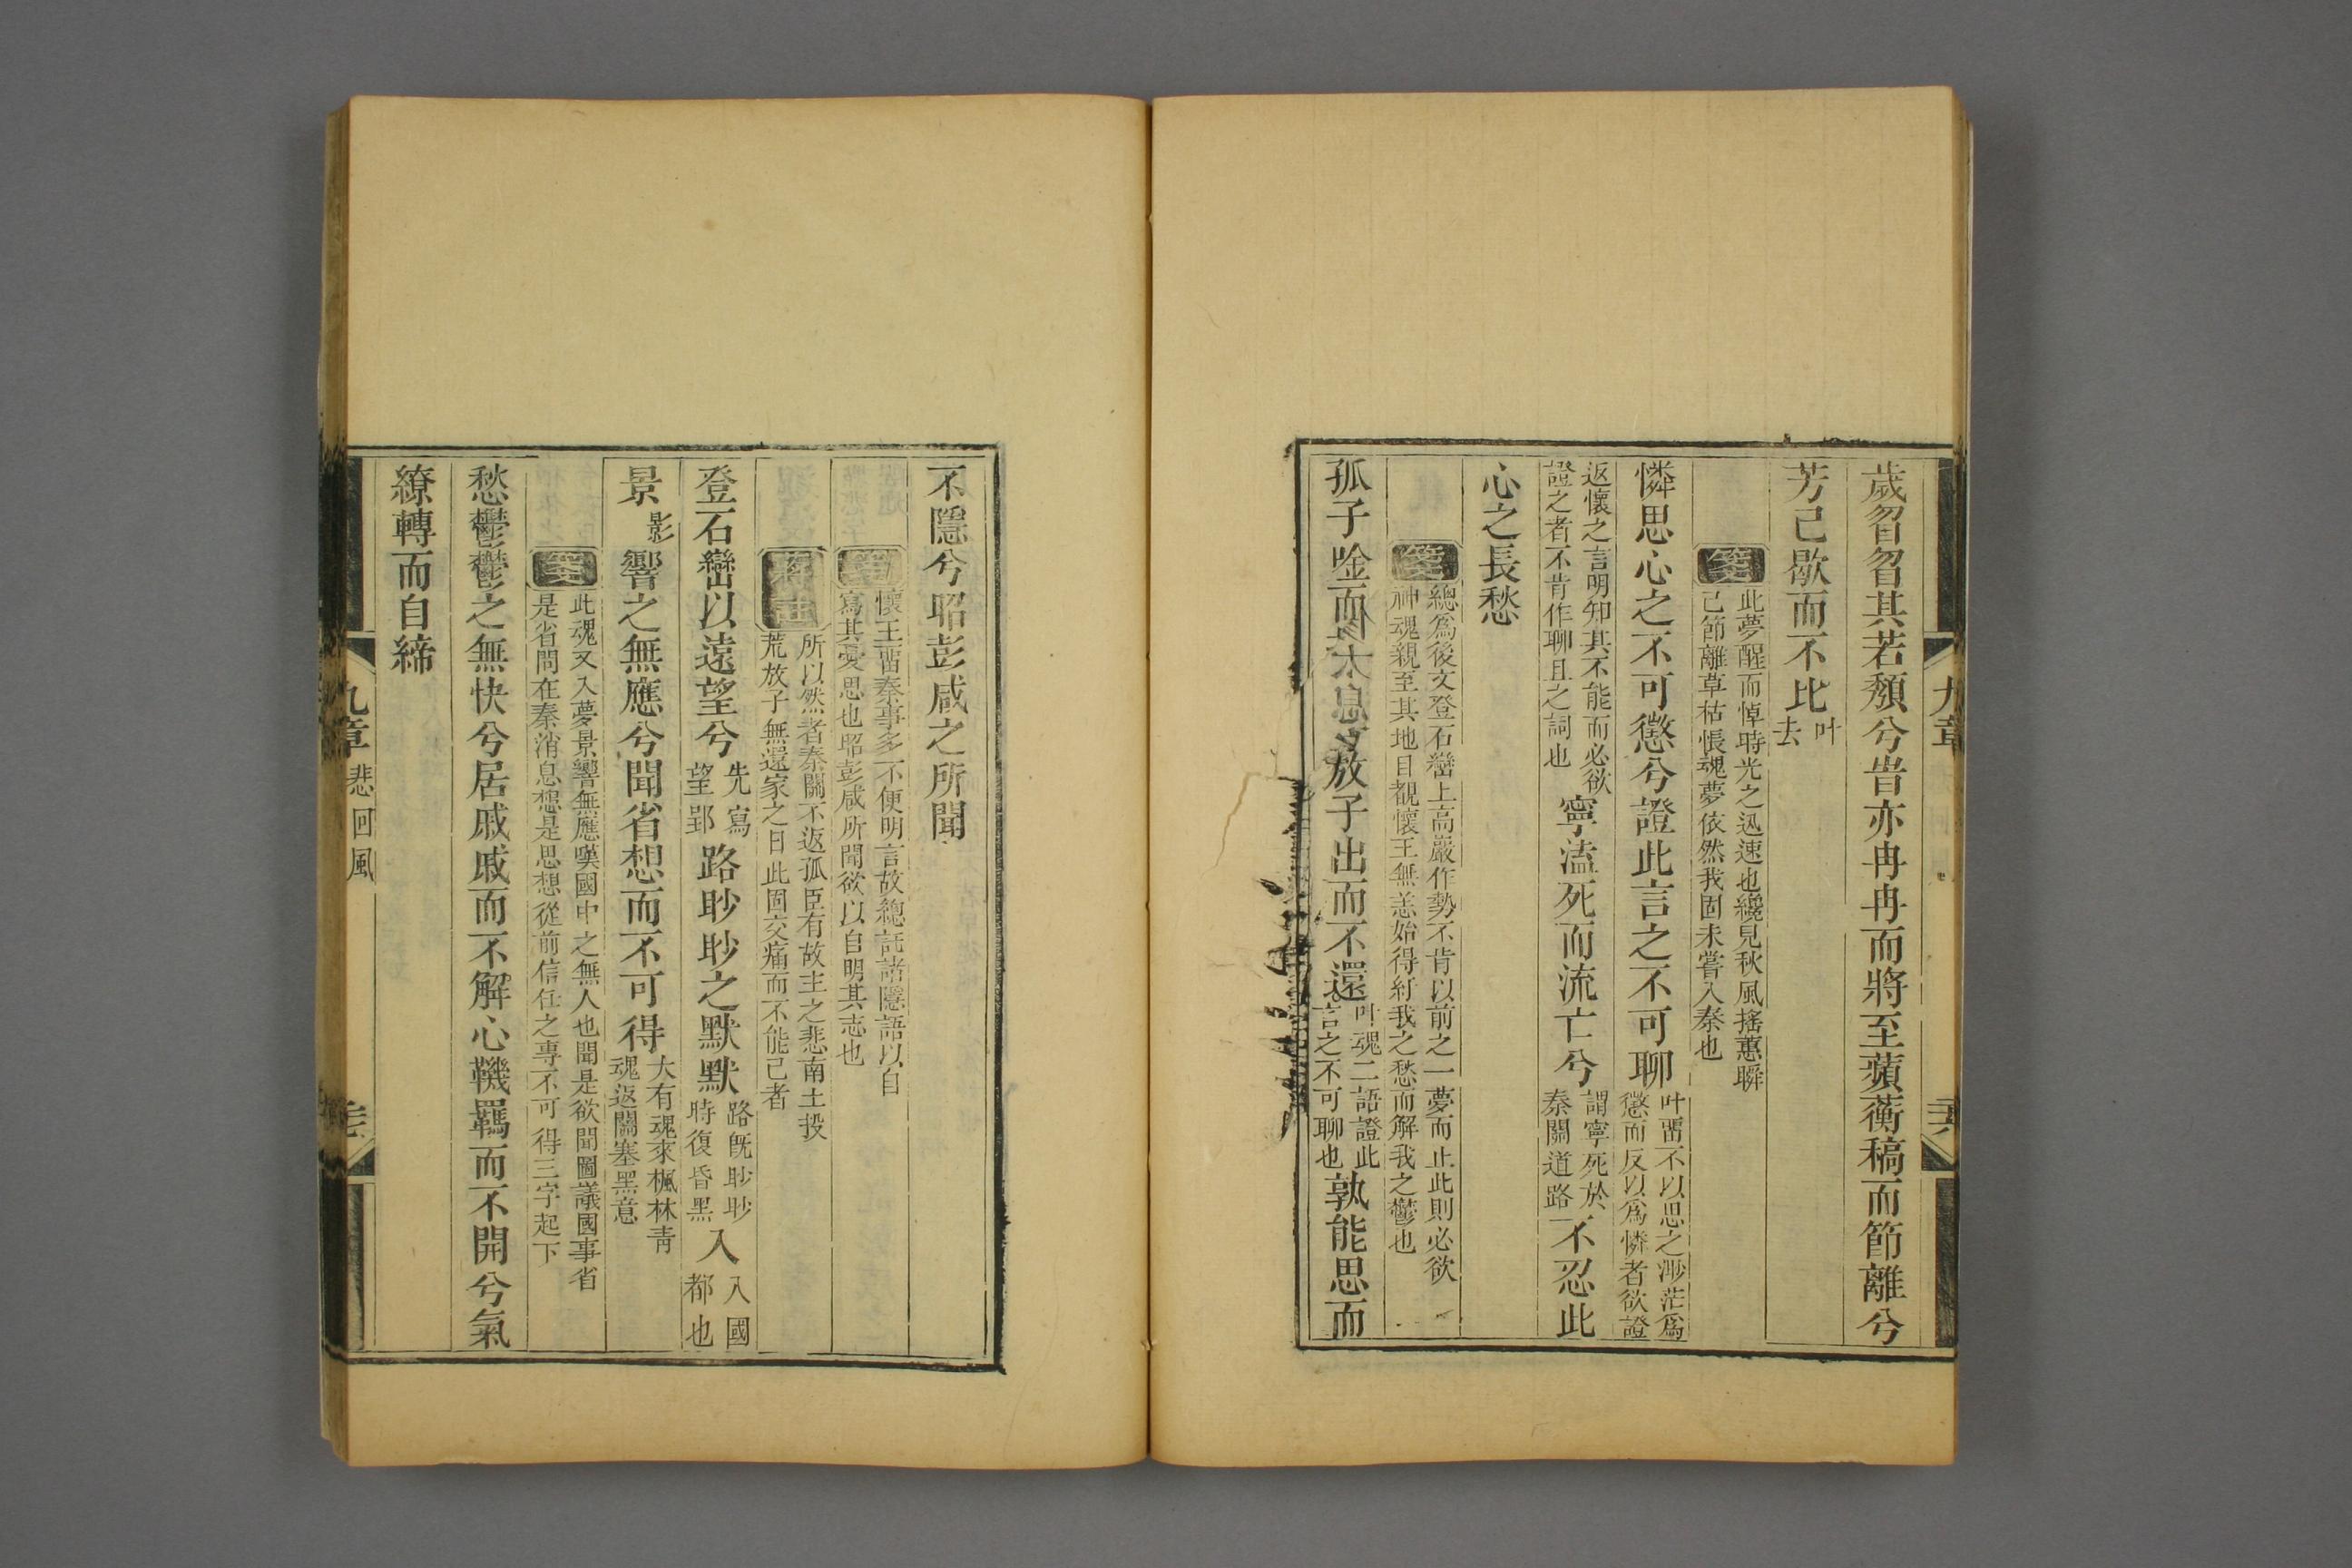 歲曶曶其若頹兮旹亦冉冉而將至蘋蘅稿而節離兮
芳已歇而不比叶去
箋此夢醒而悼時光之迅速也纔見秋風搖蕙瞬
已節離草枯悵魂夢依然我固未嘗入秦也
憐思心之不可懲兮證此言之不可聊叶畱不以思之渺茫爲懲而反以爲憐者欲證
返懷之言明知其不能而必欲證之者不肯作聊且之詞也寧溘死而流亡兮謂寧死於秦關道路不忍此
心之長愁
箋總爲後文登石巒上高巖作勢不肯以前之一夢而止此則必欲
神魂親至其地目覩懷王無恙始得紓我之愁而解我之鬱也
孤子唫而抆淚兮放子出而不還叶魂二語證此言之不可聊也孰能思而
九章
不隱兮昭彭咸之所聞
箋懷王畱秦事多不便明言故總託諸隱語以自
寫其憂思也昭彭咸所聞欲以自明其志也
所以然者秦關不返孤臣有故主之悲南土投
荒放子無還家之日此固交痛而不能已者
登石巒以遠望兮先寫望郢路眇眇之默默路旣眇眇時復昏黑入入國都也
景影響之無應兮聞省想而不可得大有魂來楓林靑魂返關塞黑意
箋此魂又入夢景響無應嘆國中之無人也聞是欲聞圖議國事省
是省問在秦消息想是思想從前信任之專不可得三字起下
愁鬱鬱之無快兮居戚戚而不解心鞿羈而不開兮氣
繚轉而自締
九章 悲回風